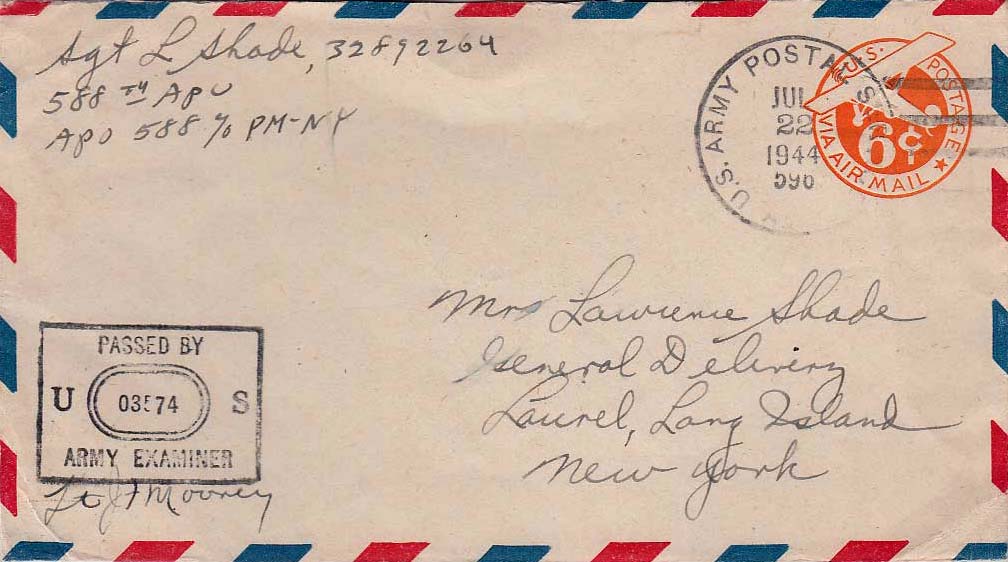 Sgt L Shade, 32892264
588 TH APU
APO 588 c/o PM-NY
U.S. ARMY POSTAL
JUL
22
1944
596
U.S. POSTAGE
6¢
VIA AIR MAIL
Mrs Lawrence Shade
General Delivery
Laurel, Long Island
New York
PASSED BY
U 03574 S
ARMY EXAMINER
Lt J Mooney